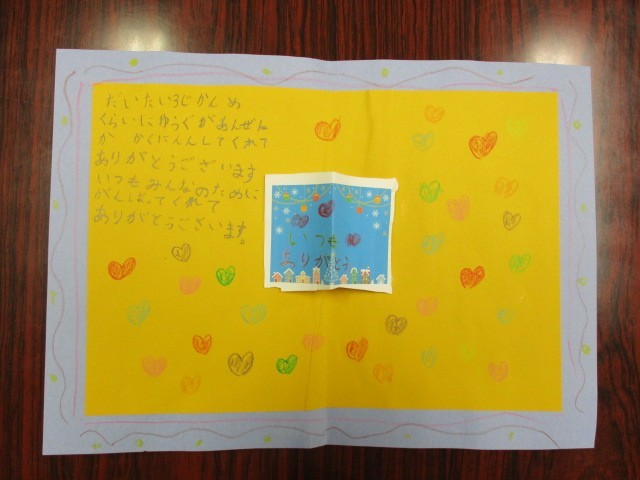 だいたい3じかんめ
くらいにゆうぐがあんぜん
か かくにんしてくれて
ありがとうございます
いつもみんなのために
がんばってくれて
ありがとうございます。
いつも
ありがとう